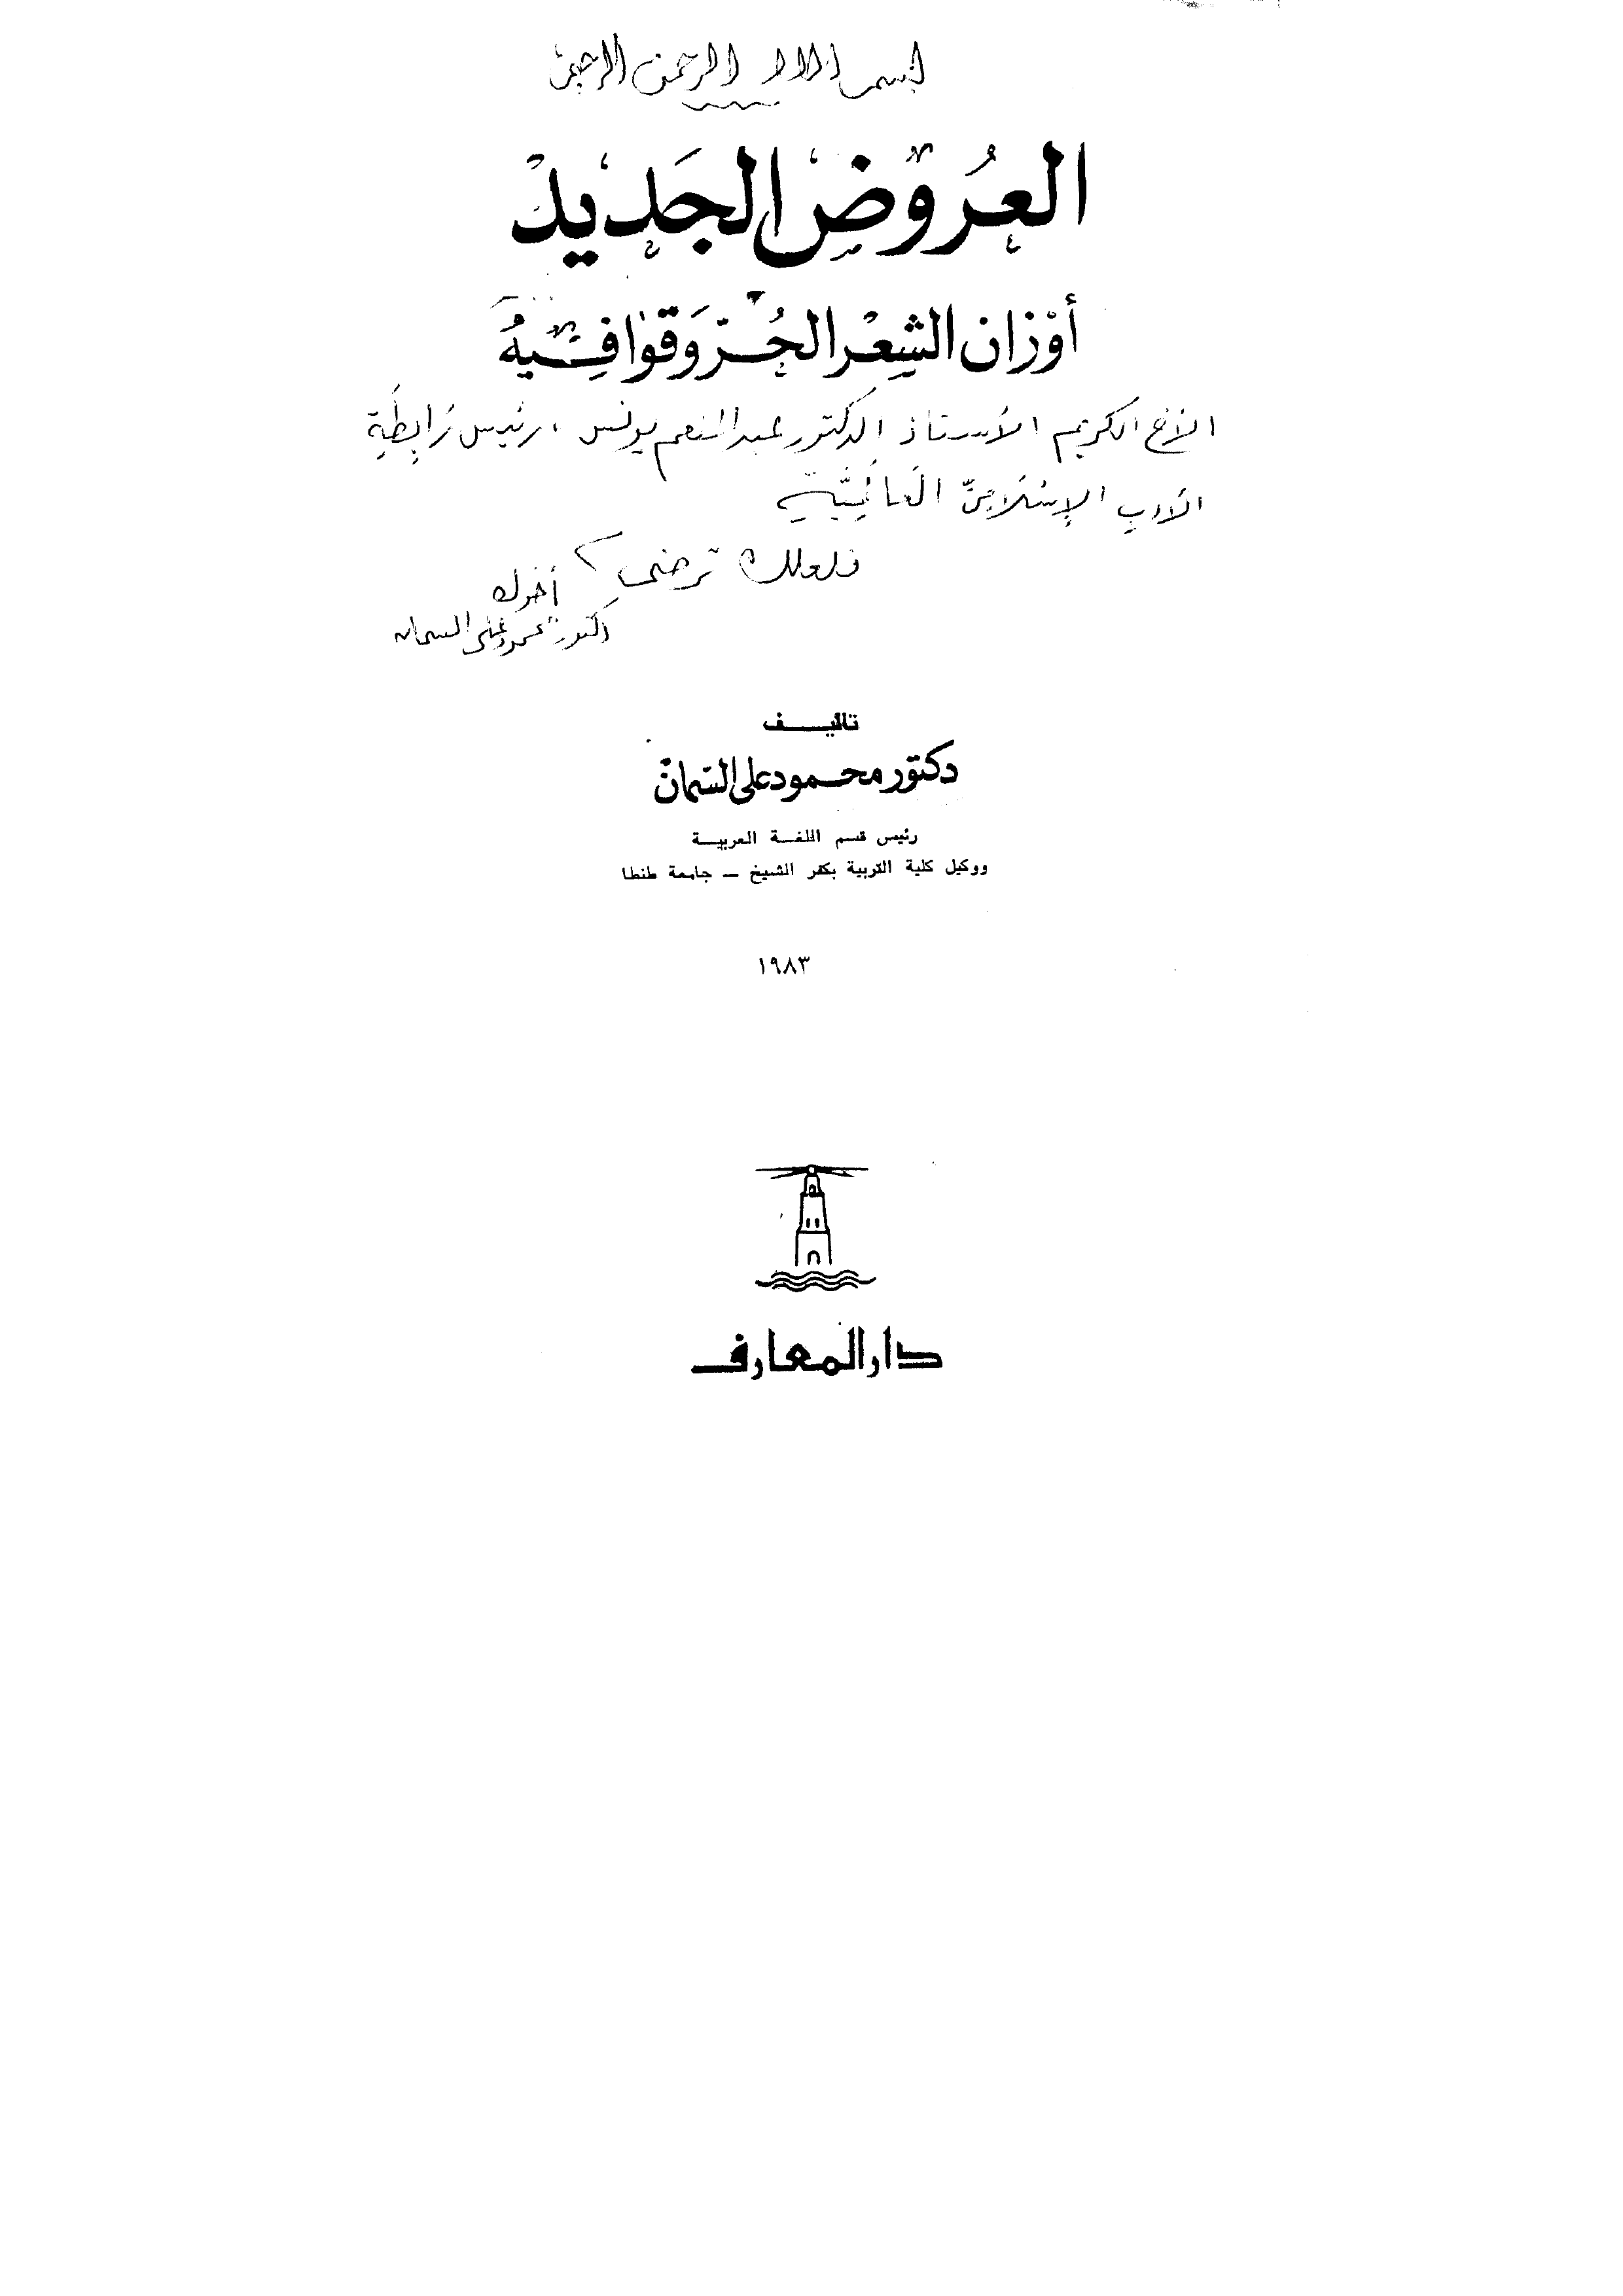 بسم الله الرحمن الرحيم
العُروض الجَديد
أوْزان الشِعْر الحُرّ وَقوَافِيهُ
الأخ الكريم الأستاذ الدكتور عبد المنعم يونس، رئيس رَابِطَةِ
الأدبِ الإسْلَامِيِّ العَالَمِيَّةِ
فلعلك ترضى
أخوك
دكتور محمود على السمان
تأليف
دكتور محمود على السّمان
رئيس قسم اللغة العربية
ووكيل كلية التربية بكفر الشيخ — جامعة طنطا
١٩٨٣
دار المعارف